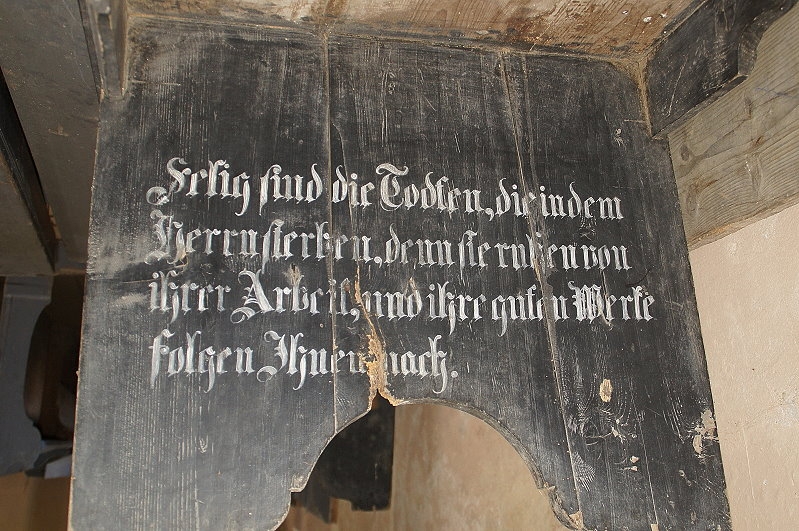 Selig sind die Todten, die in dem
Herrn sterben, denn sie ruhen von
ihrer Arbeit, und ihre guten Werke
folgen Ihnen nach.